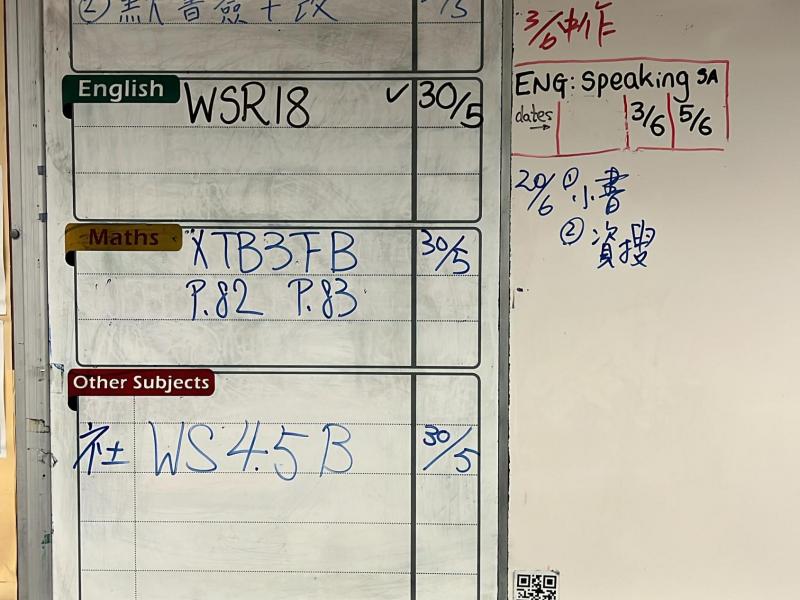 ② 默書簽+改
English WSR18 ✓ 30/5
Maths XTB3FB 30/5
P.82 P.83
Other Subjects
社 WS 4.5 B 30/5
3/6 中作
ENG: Speaking SA
dates → 3/6 5/6
20/6 ① 小書
② 資搜